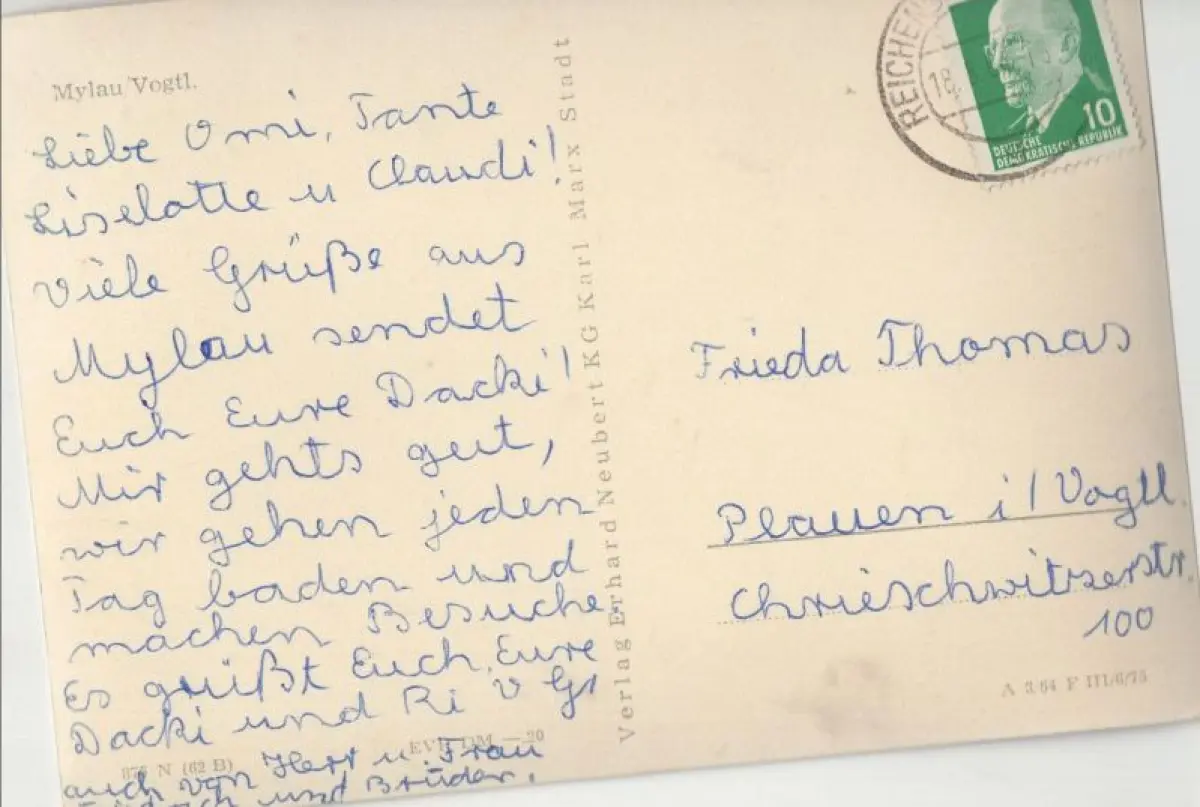 Mylau/Vogtl.
Liebe Omi, Tante
Liselotte u Claudi!
Viele Grüße aus
Mylau sendet
Euch Eure Dacki!
Mir gehts gut,
wir gehen jeden
Tag baden und
machen Besuche.
Es grüßt Euch, Eure
Dacki und Ri v Gr
auch von Herr u. Frau
und Brüder.
876 N (62 B)
EVP DM —.20
Verlag Erhard Neubert KG Karl Marx Stadt
REICHEN
18.
10
DEUTSCHE
DEMOKRATISCHE REPUBLIK
Frieda Thomas
Plauen i/Vogtl.
Chrieschwitzerstr.
100
A 3/64 F III/6/75